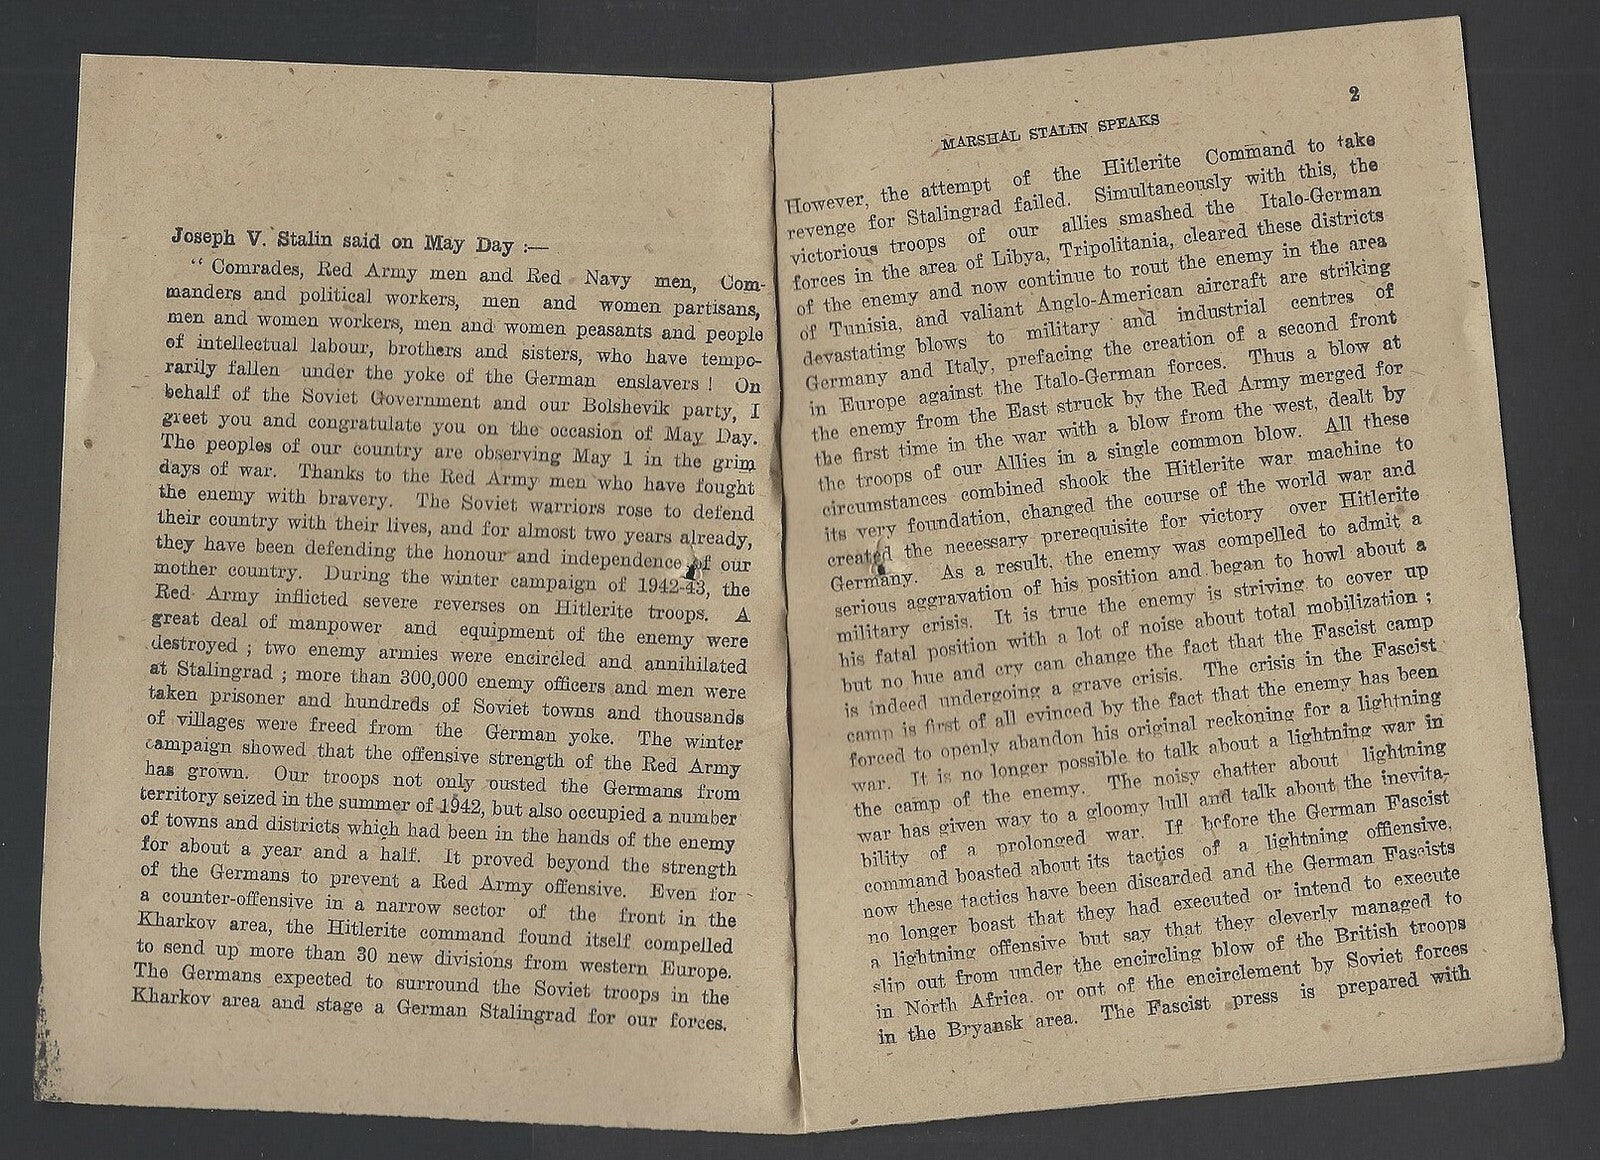 Joseph V. Stalin said on May Day :—
“ Comrades, Red Army men and Red Navy men, Com-
manders and political workers, men and women partisans,
men and women workers, men and women peasants and people
of intellectual labour, brothers and sisters, who have tempo-
rarily fallen under the yoke of the German enslavers ! On
behalf of the Soviet Government and our Bolshevik party, I
greet you and congratulate you on the occasion of May Day.
The peoples of our country are observing May 1 in the grim
days of war. Thanks to the Red Army men who have fought
the enemy with bravery. The Soviet warriors rose to defend
their country with their lives, and for almost two years already,
they have been defending the honour and independence of our
mother country. During the winter campaign of 1942-43, the
Red Army inflicted severe reverses on Hitlerite troops. A
great deal of manpower and equipment of the enemy were
destroyed ; two enemy armies were encircled and annihilated
at Stalingrad ; more than 300,000 enemy officers and men were
taken prisoner and hundreds of Soviet towns and thousands
of villages were freed from the German yoke. The winter
campaign showed that the offensive strength of the Red Army
has grown. Our troops not only ousted the Germans from
territory seized in the summer of 1942, but also occupied a number
of towns and districts which had been in the hands of the enemy
for about a year and a half. It proved beyond the strength
of the Germans to prevent a Red Army offensive. Even for
a counter-offensive in a narrow sector of the front in the
Kharkov area, the Hitlerite command found itself compelled
to send up more than 30 new divisions from western Europe.
The Germans expected to surround the Soviet troops in the
Kharkov area and stage a German Stalingrad for our forces.
2
MARSHAL STALIN SPEAKS
However, the attempt of the Hitlerite Command to take
revenge for Stalingrad failed. Simultaneously with this, the
victorious troops of our allies smashed the Italo-German
forces in the area of Libya, Tripolitania, cleared these districts
of the enemy and now continue to rout the enemy in the area
of Tunisia, and valiant Anglo-American aircraft are striking
devastating blows to military and industrial centres of
Germany and Italy, prefacing the creation of a second front
in Europe against the Italo-German forces. Thus a blow at
the enemy from the East struck by the Red Army merged for
the first time in the war with a blow from the west, dealt by
the troops of our Allies in a single common blow. All these
circumstances combined shook the Hitlerite war machine to
its very foundation, changed the course of the world war and
created the necessary prerequisite for victory over Hitlerite
Germany. As a result, the enemy was compelled to admit a
serious aggravation of his position and began to howl about a
military crisis. It is true the enemy is striving to cover up
his fatal position with a lot of noise about total mobilization ;
but no hue and cry can change the fact that the Fascist camp
is indeed undergoing a grave crisis. The crisis in the Fascist
camp is first of all evinced by the fact that the enemy has been
forced to openly abandon his original reckoning for a lightning
war. It is no longer possible to talk about a lightning war in
the camp of the enemy. The noisy chatter about lightning
war has given way to a gloomy lull and talk about the inevita-
bility of a prolonged war. If before the German Fascist
command boasted about its tactics of a lightning offensive,
now these tactics have been discarded and the German Fascists
no longer boast that they had executed or intend to execute
a lightning offensive but say that they cleverly managed to
slip out from under the encircling blow of the British troops
in North Africa. or out of the encirclement by Soviet forces
in the Bryansk area. The Fascist press is prepared with